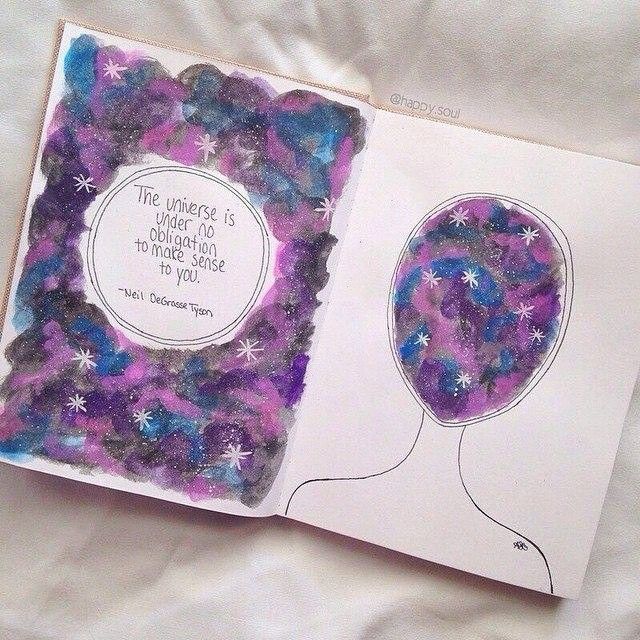 @happy.soul
The universe is
under no
obligation
to make sense
to you.
-Neil DeGrasse Tyson